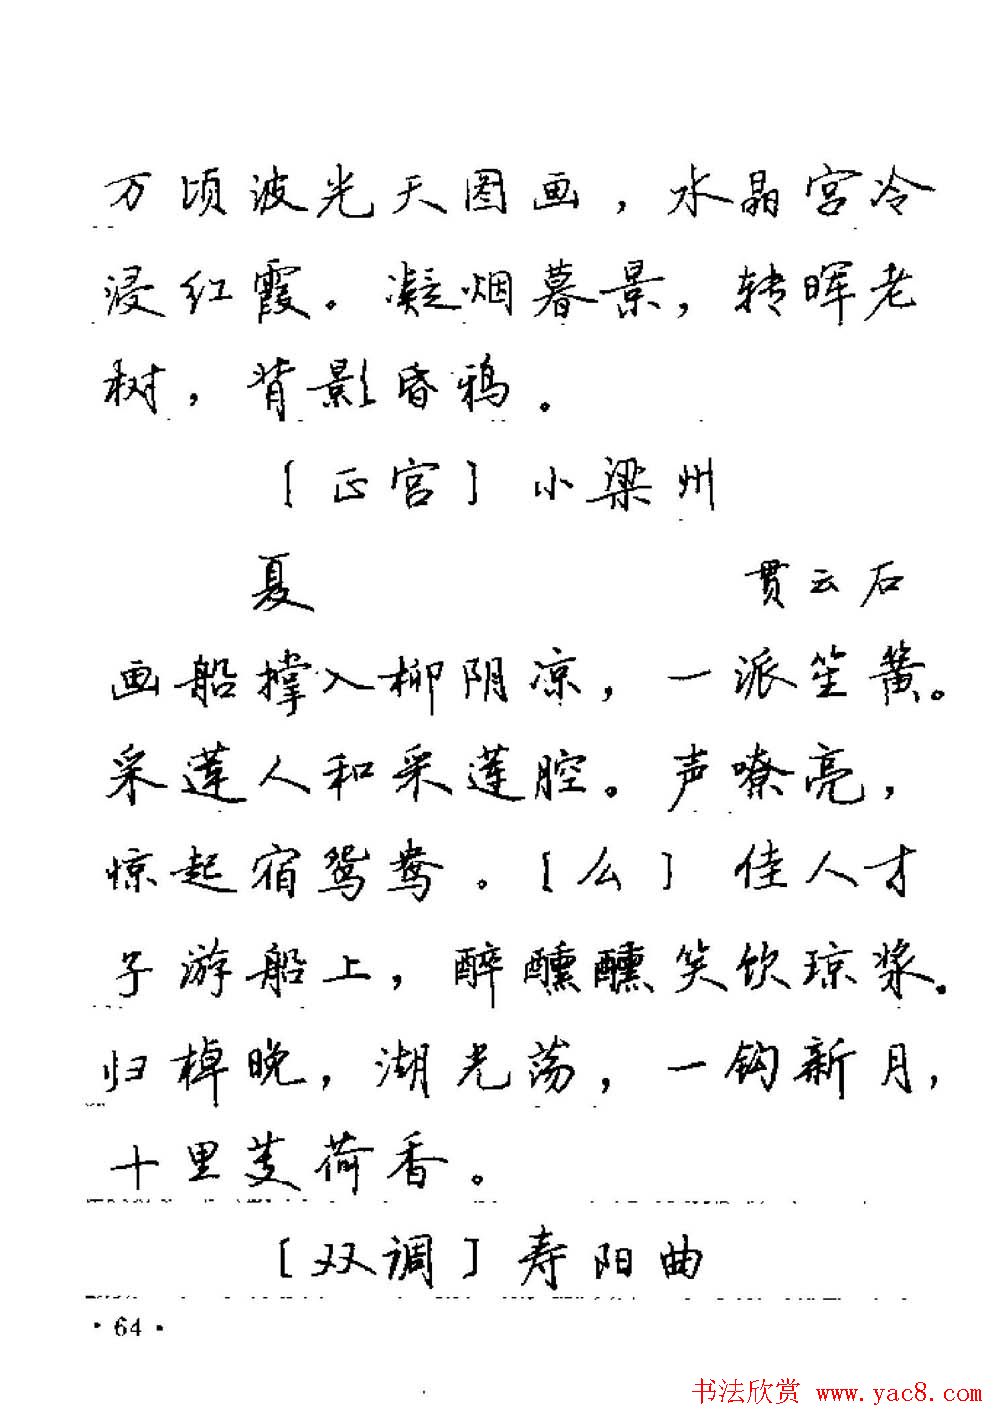 万顷波光天图画，水晶宫冷
浸红霞。凝烟暮景，转晖老
树，背影昏鸦。
［正宫］小梁州
夏 贯云石
画船撑入柳阴凉，一派笙簧。
采莲人和采莲腔。声嘹亮，
惊起宿鸳鸯。［么］佳人才
子游船上，醉醺醺笑饮琼浆。
归棹晚，湖光荡，一钩新月，
十里芰荷香。
［双调］寿阳曲
·64·
书法欣赏 www.yac8.com